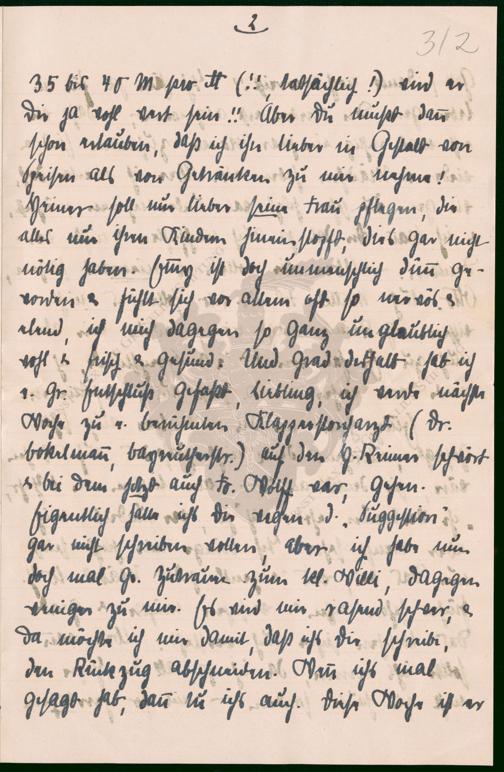 2
312
35 bis 40 M pro ℔ (!!, tatsächlich!) wird er
Dir ja wohl wert sein!! Aber Du mußt dañ
schon erlauben, daß ich ihn lieber in Gestalt von
Speisen als von Getränken zu mir nehme!
Heiner soll nur lieber seine Frau pflegen, die
alles nur ihren Kindern hineinstopft, dies gar nicht
nötig haben. Emy ist doch unmenschlich düñ ge-
worden & fühlt sich vor allem oft so nervös &
elend, ich mich dagegen so ganz unglaublich
wohl & frisch & gesund. Und grad deshalb hab ich
e. gr. Entschluß gefaßt, Liebling, ich werde nächste
Woche zu e. berühmten Klapperstorcharzt (Dr.
Bokelmañ, Bayreutherstr.) auf den G. Reimer schwört
& bei dem jetzt auch Fr. Wolff war, gehen.
Eigentlich hatte ichs Dir wegen d. „Suggestion"
gar nicht schreiben wollen, aber ich habe nun
doch mal gr. Zutrauen zum kl. Willi, dagegen
weniger zu mir. Es wird mir rasend schwer, &
da möchte ich mir damit, daß ichs Dir schreibe,
den Rückzug abschneiden. Weñ ichs mal
gesagt hab, dañ tu ichs auch. Diese Woche ist er